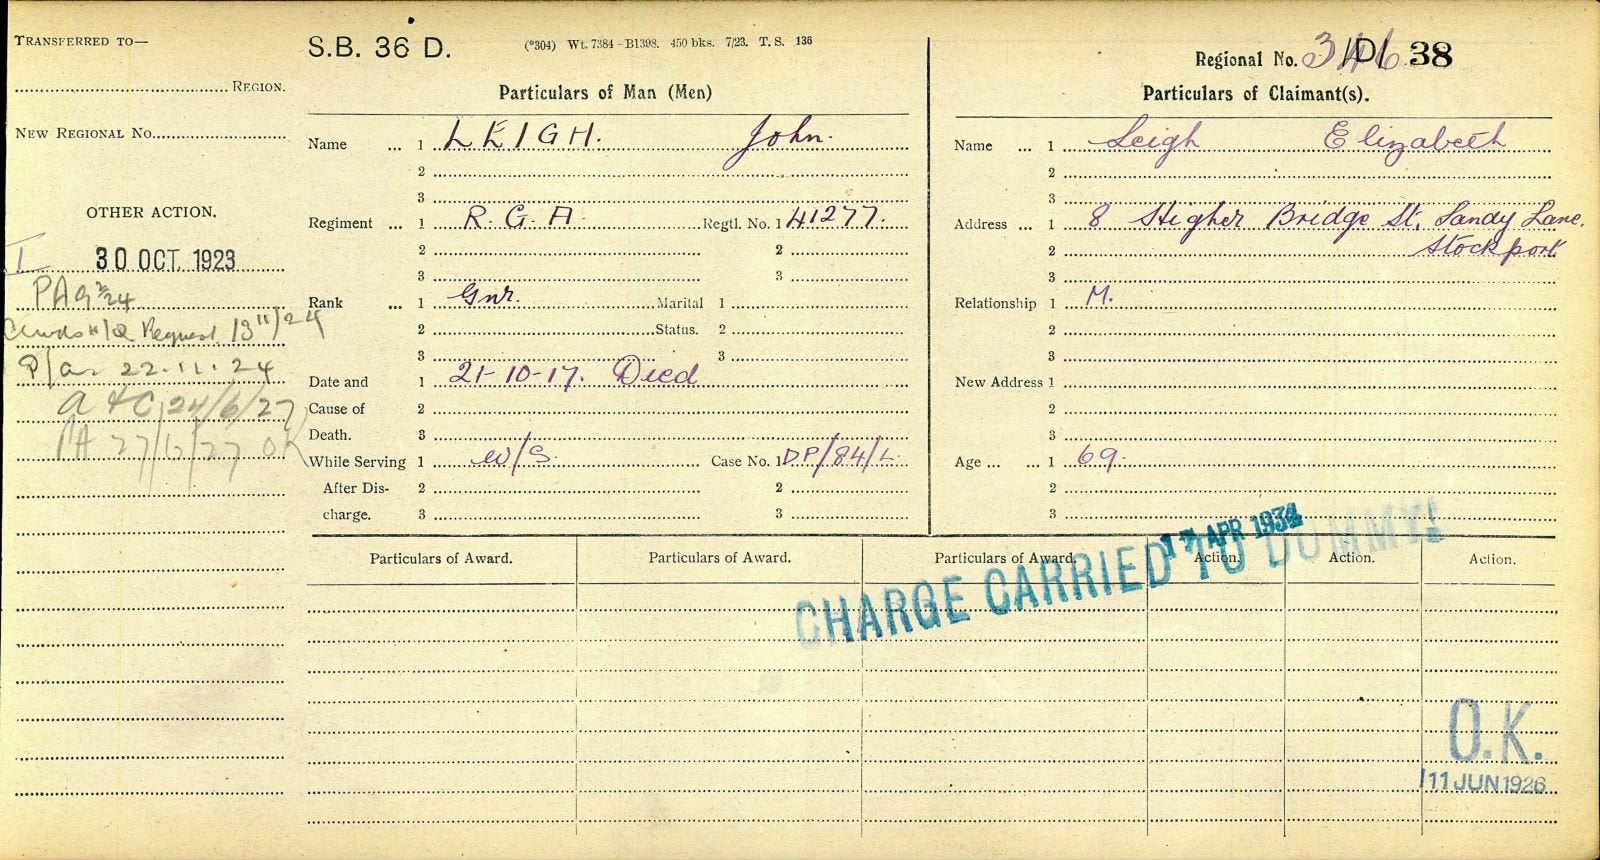 TRANSFERRED TO—
REGION.
NEW REGIONAL No.
OTHER ACTION.
I 30 OCT. 1923
PA 9 2/24
H/Q Request 13 11/24
P/a 22.11.24
a & C 24/6/27
PA 27/6/27 OK
S.B. 36 D. (*304) Wt. 7384–B1398. 450 bks. 7/23. T. S. 136
Particulars of Man (Men)
Name ... 1 LEIGH. John.
2
3
Regiment 1 R.G.A. Regtl. No. 1 41277.
2 2
3 3
Rank ... 1 Gnr. Marital 1
2 Status. 2
3 3
Date and 1 21-10-17. Died
Cause of 2
Death. 3
While Serving 1 W/S. Case No. 1 DP/84/L.
After Dis- 2 2
charge. 3 3
Regional No. 346 /D/ 38
Particulars of Claimant(s).
Name ... 1 Leigh Elizabeth
2
3
Address ... 1 8 Higher Bridge St. Sandy Lane.
2 Stockport
3
Relationship 1 M.
2
3
New Address 1
2
3
Age ... ... 1 69.
2
3
17 APR 1934
CHARGE CARRIED TO DUMMY!
Particulars of Award. Particulars of Award. Particulars of Award. Action. Action. Action.
O.K.
11 JUN 1926